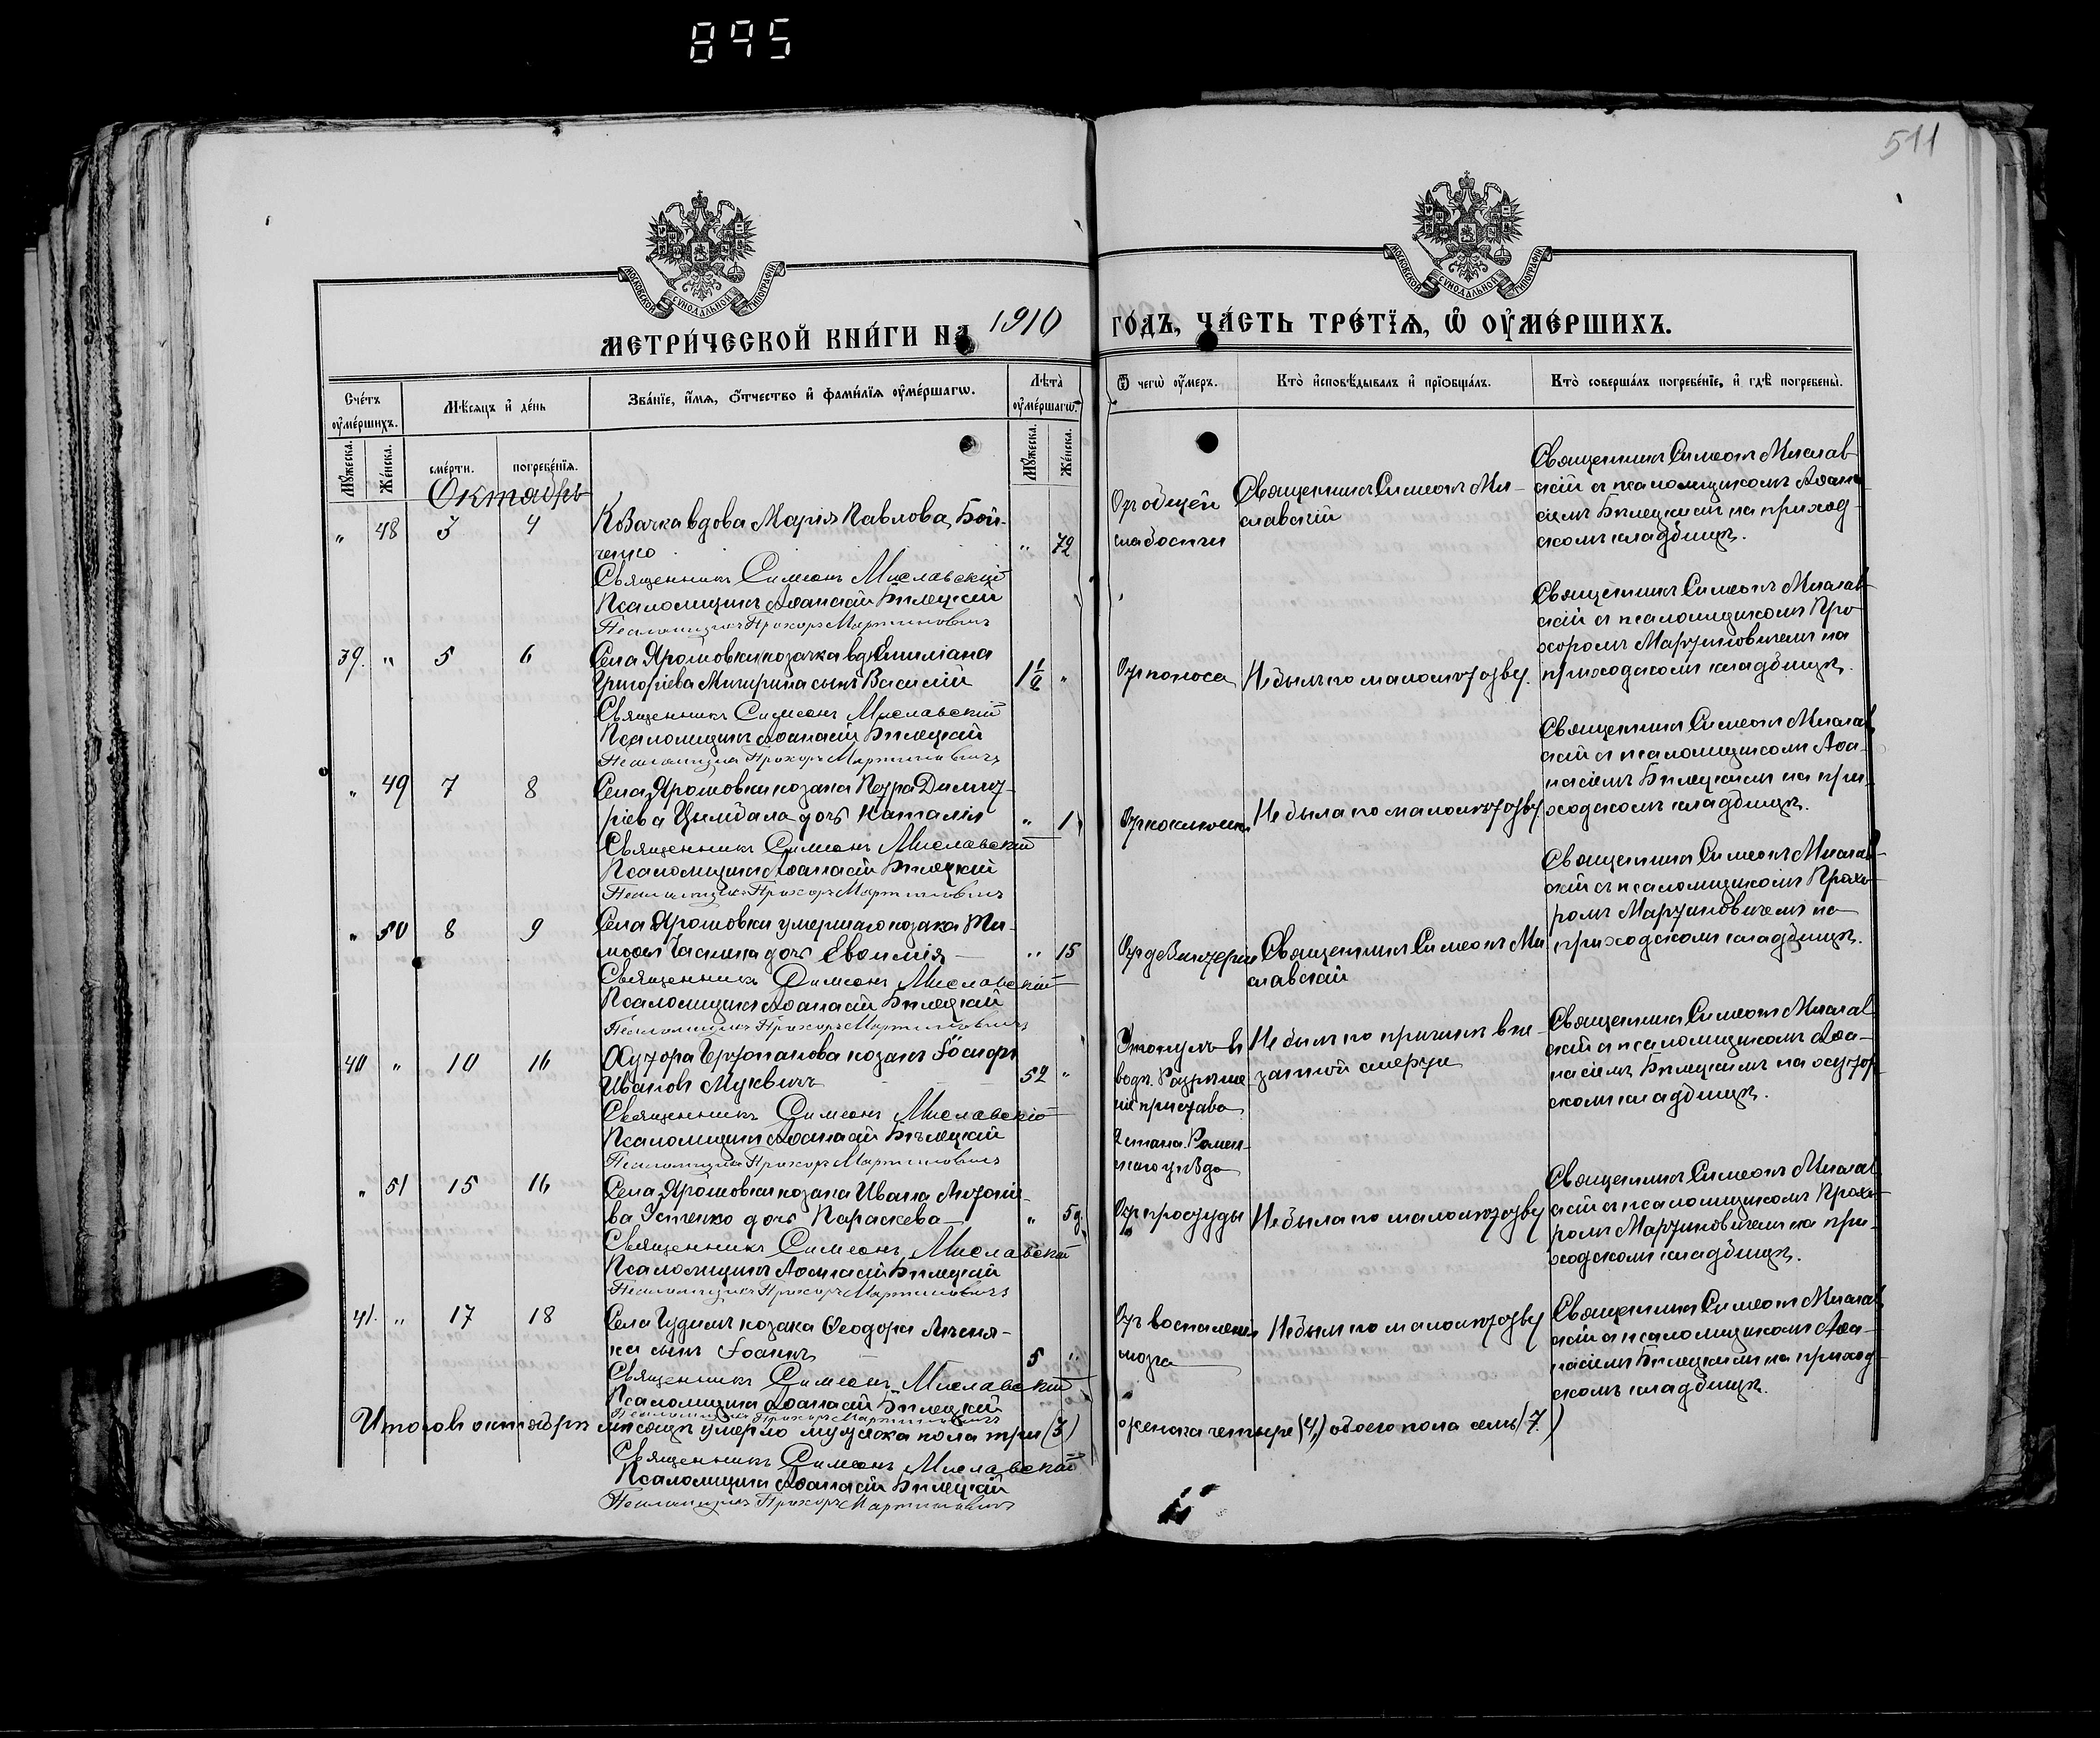 895
511
МОСКОВСКОЙ СѴНОДАЛЬНОЙ ТИПОГРАФІИ
МОСКОВСКОЙ СѴНОДАЛЬНОЙ ТИПОГРАФІИ
МЕТРИ́ЧЕСКОЙ КНИ́ГИ НА 1910 ГО́ДЪ, ЧА́СТЬ ТРЕ́ТЇѦ, Ѽ ОУ҆МЕ́РШИХЪ.
Сче́тъ оу҆ме́ршихъ.
Мѣ́сяцъ и҆ де́нь
Зва́нїе, и҆́мѧ, ѻ҆́тчество и҆ фами́лїѧ оу҆ме́ршагѡ.
Лѣ́та оу҆ме́ршагѡ.
Ѿ чегѡ̀ оу҆́меръ.
Кто̀ и҆сповѣ́дывалъ и҆ прїѡбща́лъ.
Кто̀ соверша́лъ погребе́нїе, и҆ гдѣ̀ погребены̀.
Мꙋ́жеска.
Же́нска.
сме́рти.
погребе́нїѧ.
Мꙋ́жеска.
Же́нска.
Октябрь
" 48 3 4 Козачка вдова Марія Павлова Бой-
ченко " 72
Священникъ Симеонъ Миславскій
Псаломщикъ Аѳанасій Билецкій
Псаломщикъ Прохоръ Мартиновичъ
Отъ общей
слабости
Священникъ Симеонъ Ми-
славскій
Священникъ Симеонъ Мислав-
скій съ псаломщикомъ Аѳана-
сіемъ Билецкимъ на приход-
скомъ кладбищѣ.
39. " 5 6 Села Ярошовки козачка вд. Емиліана
Григоріева сынъ Василій 1½ "
Священникъ Симеонъ Миславскій
Псаломщикъ Аѳанасій Билецкій
Псаломщикъ Прохоръ Мартиновичъ
Отъ поноса
Не былъ по малолѣтству.
Священникъ Симеонъ Мислав-
скій съ псаломщикомъ Про-
хоромъ Мартиновичемъ на
приходскомъ кладбищѣ.
" 49 7 8 Села Ярошовки козака Петра Димит-
ріева Цымбала дочь Наталія " 1
Священникъ Симеонъ Миславскій
Псаломщикъ Аѳанасій Билецкій
Псаломщикъ Прохоръ Мартиновичъ
Отъ коклюша
Не была по малолѣтству
Священникъ Симеонъ Мислав-
скій съ псаломщикомъ Аѳа-
насіемъ Билецкимъ на при-
ходскомъ кладбищѣ.
" 50 8 9 Села Ярошовки умершаго козака Ти-
моѳея дочь Евѳимія " 15
Священникъ Симеонъ Миславскій
Псаломщикъ Аѳанасій Билецкій
Псаломщикъ Прохоръ Мартиновичъ
Отъ дезинтеріи
Священникъ Симеонъ Ми-
славскій
Священникъ Симеонъ Мислав-
скій съ псаломщикомъ Прохо-
ромъ Мартиновичемъ на
приходскомъ кладбищѣ.
40 " 10 16 Хутора козакъ Іосифъ
Ивановъ Муквичъ 52 "
Священникъ Симеонъ Миславскій
Псаломщикъ Аѳанасій Билецкій
Псаломщикъ Прохоръ Мартиновичъ
Утонулъ въ
водѣ. Разрѣше-
ніе пристава
2 стана Ромен-
скаго уѣзда
Не былъ по причинѣ вне-
запной смерти
Священникъ Симеонъ Мислав-
скій съ псаломщикомъ Аѳа-
насіемъ Билецкимъ на хутор-
скомъ кладбищѣ.
" 51 15 16 Села Ярошовки козака Ивана Антоніе-
ва Устенко дочь Параскева " 5 д.
Священникъ Симеонъ Миславскій
Псаломщикъ Аѳанасій Билецкій
Псаломщикъ Прохоръ Мартиновичъ
Отъ простуды
Не была по малолѣтству
Священникъ Симеонъ Мислав-
скій съ псаломщикомъ Прохо-
ромъ Мартиновичемъ на при-
ходскомъ кладбищѣ.
41. " 17 18 Села Гудимъ козака Ѳеодора
сынъ Іоаннъ 5 "
Священникъ Симеонъ Миславскій
Псаломщикъ Аѳанасій Билецкій
Псаломщикъ Прохоръ Мартиновичъ
Отъ воспаленія
мозга
Не былъ по малолѣтству
Священникъ Симеонъ Мислав-
скій съ псаломщикомъ Аѳа-
насіемъ Билецкимъ на приход-
скомъ кладбищѣ.
Итого въ октябрѣ мѣсяцѣ умерло мужеска пола три (3) женска четыре (4) обоего пола семь (7.)
Священникъ Симеонъ Миславскій
Псаломщикъ Аѳанасій Билецкій
Псаломщикъ Прохоръ Мартиновичъ